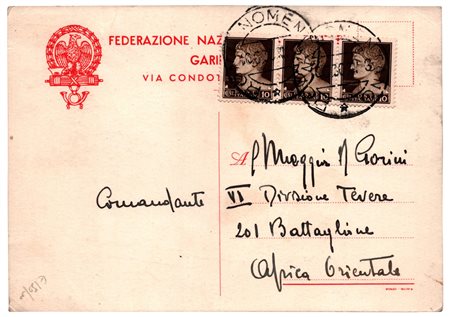 FEDERAZIONE NAZ
GARI
VIA CONDOT
NOMEN
10 10 10
Al Maggior Gorini
Comandante
VI Divisione Tevere
201 Battaglione
Africa Orientale